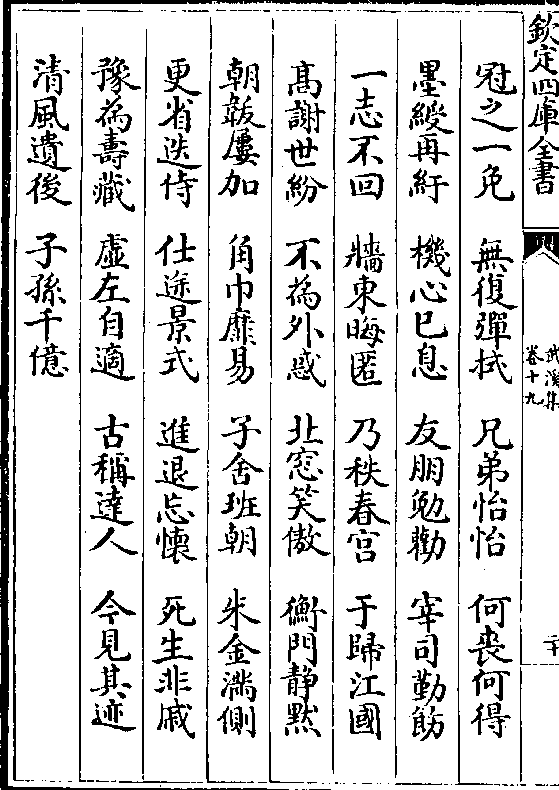 欽定四庫全書
武溪集
卷十九
二十
冠之一免 無復彈拭 兄弟怡怡 何喪何得
墨綬再紆 機心已息 友朋勉勸 宰司勤飭
一志不回 牆東晦匿 乃秩春宫 于歸江國
髙謝世紛 不為外惑 北窓笑傲 衡門静黙
朝韍屢加 角巾靡易 子舍班朝 朱金滿側
更省迭侍 仕途景式 進退忘懷 死生非戚
豫為壽藏 虚左自適 古稱達人 今見其迹
清風遺後 子孫千億